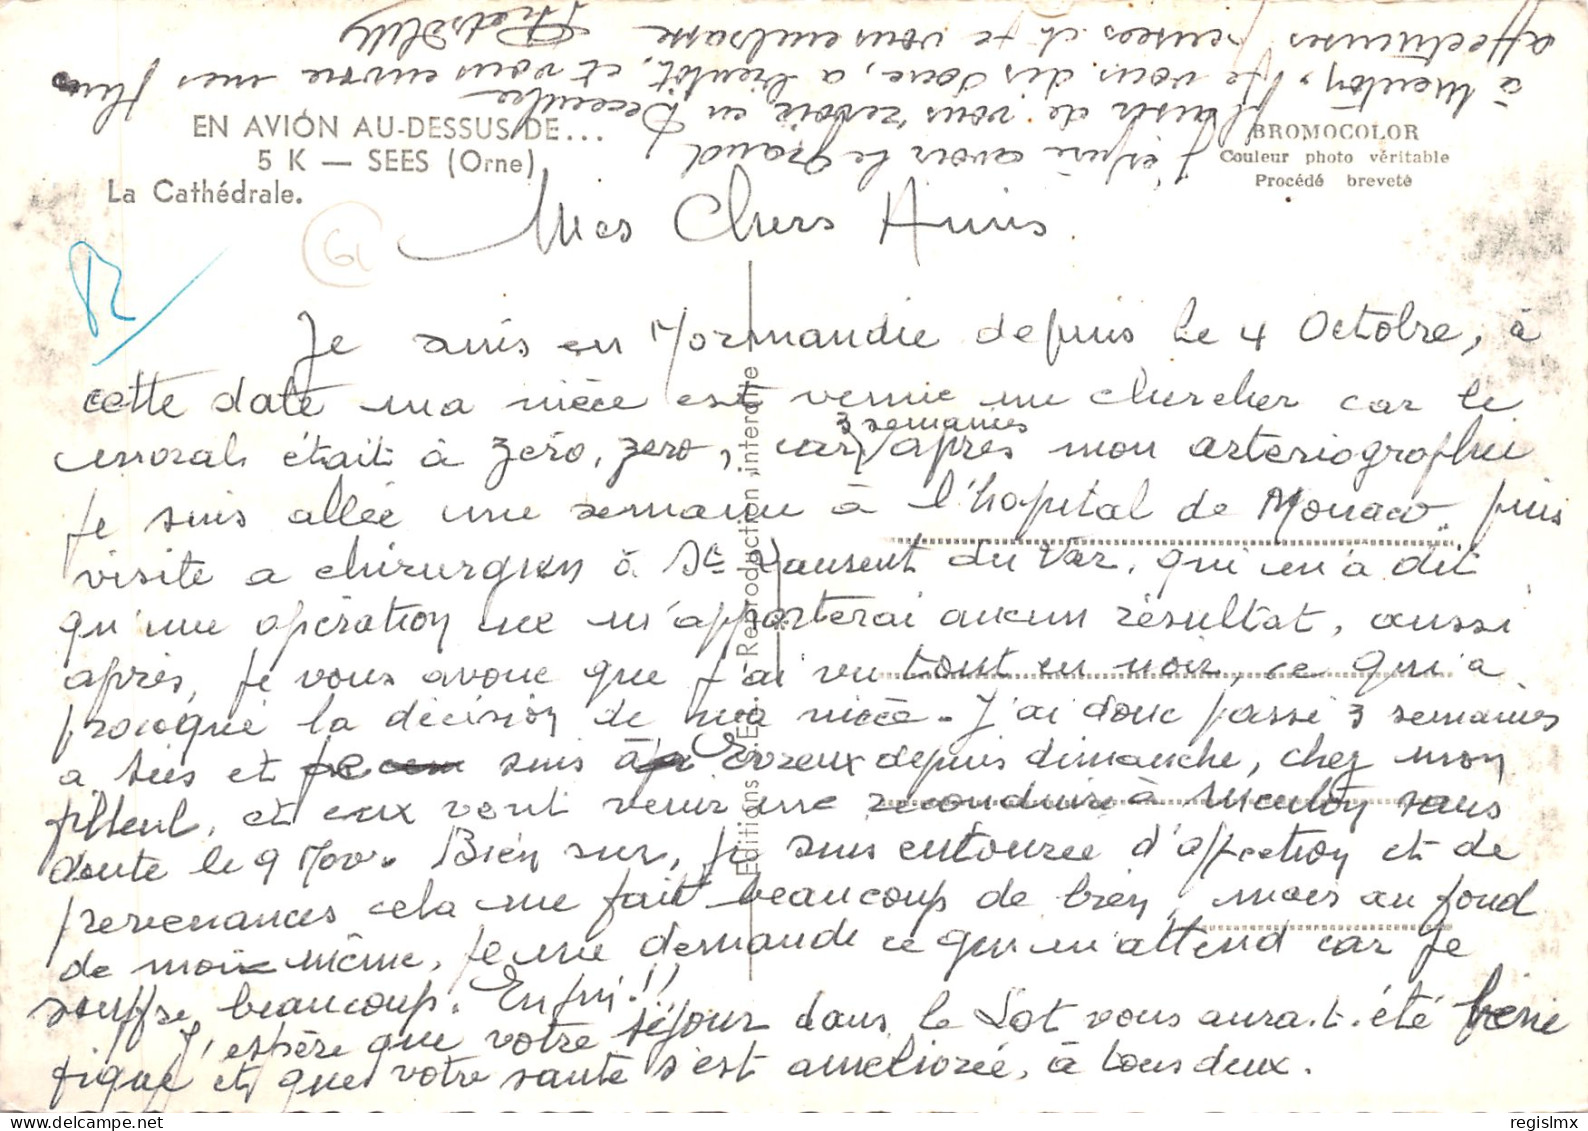 EN AVION AU-DESSUS DE...
5 K — SEES (Orne)
La Cathédrale.
BROMOCOLOR
Couleur photo véritable
Procédé breveté
Editions "E - Reproduction interdite
Mes Chers Amis
Je suis en Normandie depuis le 4 Octobre, à
cette date ma nièce est venue me chercher car le
moral était à zéro, zero, car 3 semaines après mon arteriographie
je suis allée une semaine à l'hopital de Monaco. puis
visite a chirurgien à St Laurent du Var, qui m'a dit
qu'une opération ne m'apporterai aucun résultat, aussi
après, je vous avoue que j'ai vu tout en noir, ce qui a
provoqué la décision de ma nièce - J'ai donc passé 3 semaines
a Sées et suis à Evreux depuis dimanche, chez mon
filleul, et eux vont venir me reconduire à Menton sans
doute le 9 Nov. Bien sur, je suis entourée d'affection et de
prevenances cela me fait beaucoup de bien, mais au fond
de moi même, je me demande ce qui m'attend car je
souffre beaucoup. Enfin!!
J'espère que votre séjour dans le Lot vous aura.t.été béné
fique et que votre santé s'est améliorée, à tous deux.
J'espère avoir le grand
plaisir de vous revoir en Decembre
à Menton, je vous dis donc, a bientôt, et vous envoie mes plus
affectueuses pensées et je vous embrasse
61
regislmx